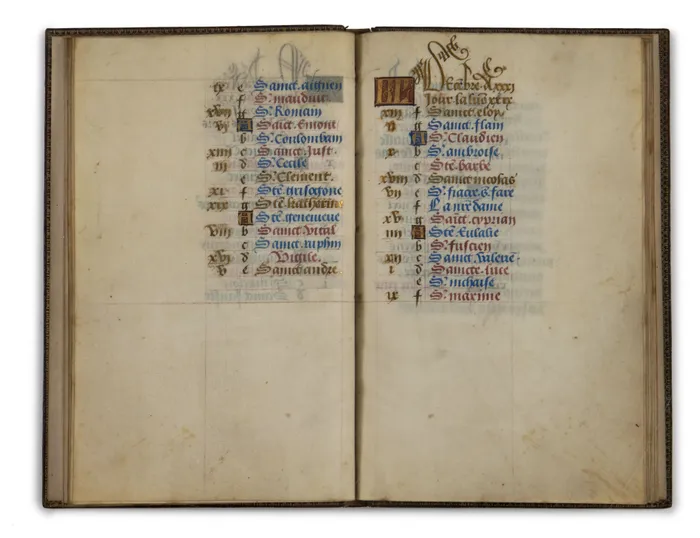 ix e Sainct aignen
f S. mauduit
xvii g S. Romain
vi A Saīct Emont
b S. Coulombam
xiiii c Sainct Just
iii d S. Cecile
e S. Clement.
xi f Ste grisogone
xix g Ste katherine
A Ste geneuieue
viii b Sainct Vital
c Sainct ruphin
xvi d Vigile.
v e Sainct andre
Decēbre a xxxi
Jour la lune xxix
xiii f Sainct eloy
ii g Sainct flam
A S. Claudien
x b S. ambroise
c Ste barbe
xviii d Sainct nicolas
vii e S. fiacre s. fare
f La nre dame
xv g Saīct cyprian
iiii A Ste Eulalie
b S. fuscien
xii c Sainct Valerie
i d Saincte luce
e S. nichaise
ix f S. maxime